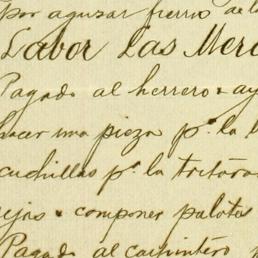 por aguzar fierro de l
Labor Las Merc
Pagado al herrero & ay
hacer una pieza pª. la l
cuchillas pª. la tritura
rejas & componer palotes
Pagado al carpintero p